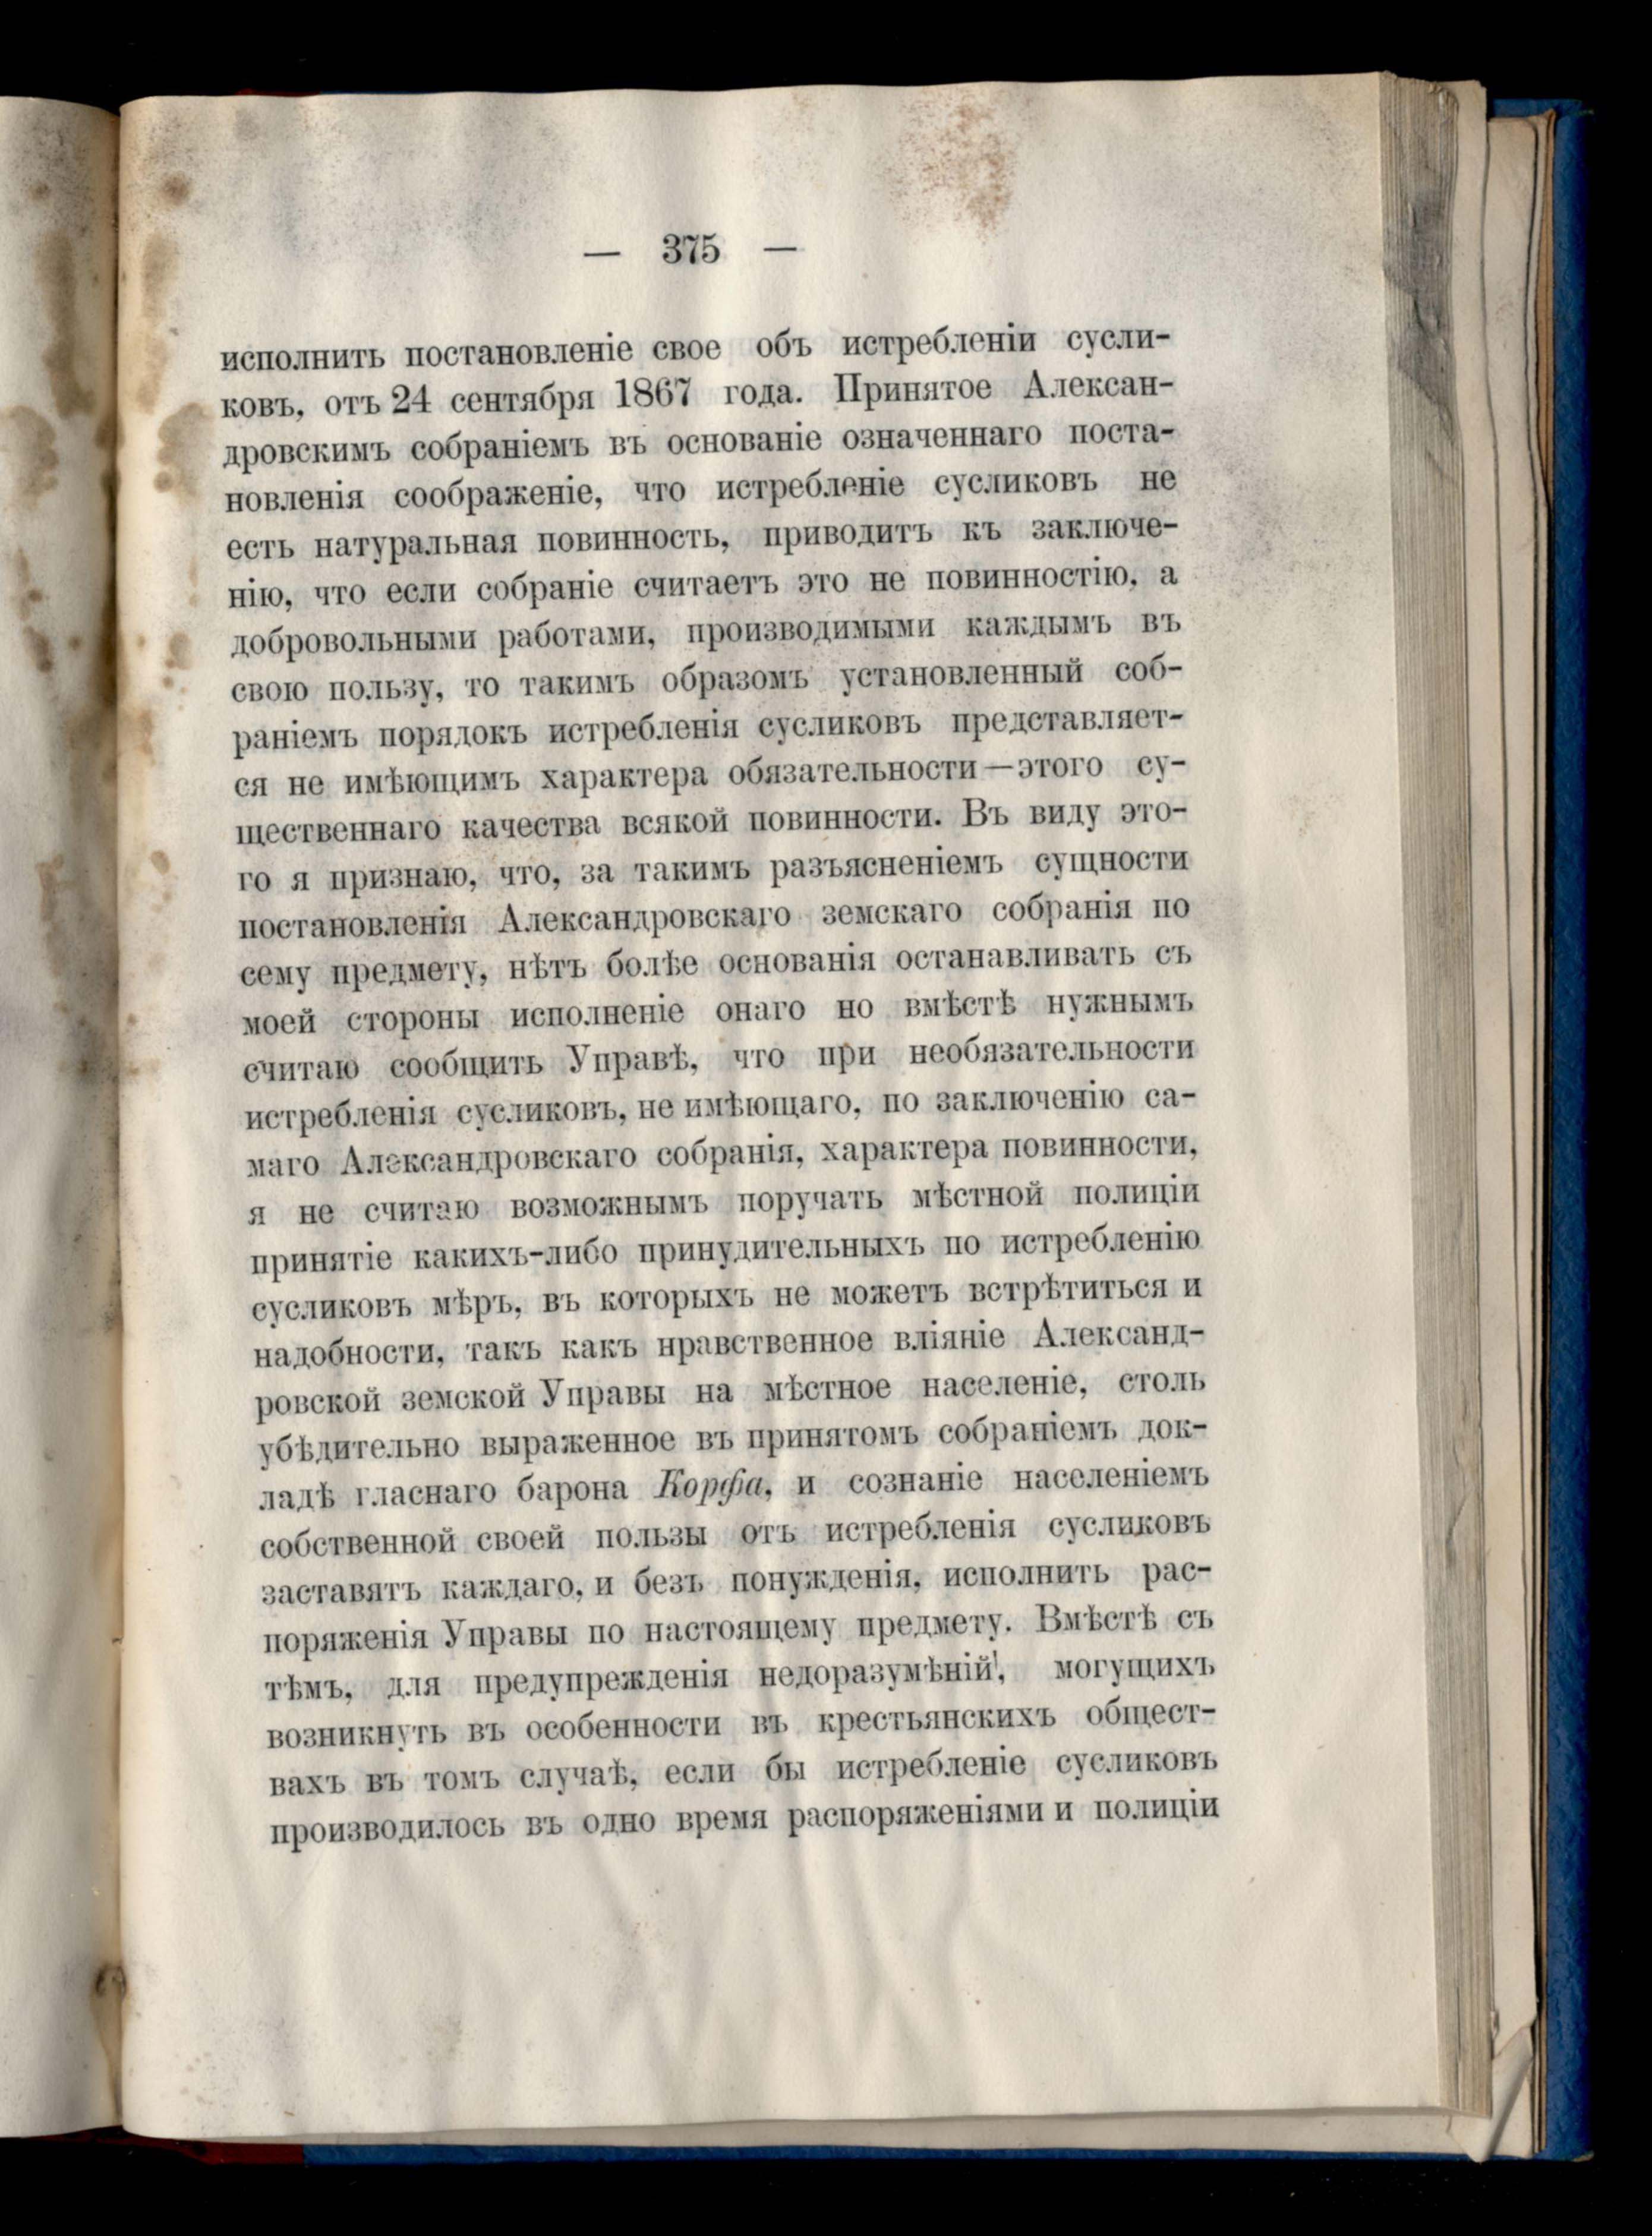 — 375 —
исполнить постановленіе свое объ истребленіи сусли-
ковъ, отъ 24 сентября 1867 года. Принятое Алексан-
дровскимъ собраніемъ въ основаніе означеннаго поста-
новленія соображеніе, что истребленіе сусликовъ не
есть натуральная повинность, приводитъ къ заключе-
нію, что если собраніе считаетъ это не повинностію, а
добровольными работами, производимыми каждымъ въ
свою пользу, то такимъ образомъ установленный соб-
раніемъ порядокъ истребленія сусликовъ представляет-
ся не имѣющимъ характера обязательности—этого су-
щественнаго качества всякой повинности. Въ виду это-
го я признаю, что, за такимъ разъясненіемъ сущности
постановленія Александровскаго земскаго собранія по
сему предмету, нѣтъ болѣе основанія останавливать съ
моей стороны исполненіе онаго но вмѣстѣ нужнымъ
считаю сообщить Управѣ, что при необязательности
истребленія сусликовъ, не имѣющаго, по заключенію са-
маго Александровскаго собранія, характера повинности,
я не считаю возможнымъ поручать мѣстной полиціи
принятіе какихъ-либо принудительныхъ по истребленію
сусликовъ мѣръ, въ которыхъ не можетъ встрѣтиться и
надобности, такъ какъ нравственное вліяніе Александ-
ровской земской Управы на мѣстное населеніе, столь
убѣдительно выраженное въ принятомъ собраніемъ док-
ладѣ гласнаго барона Корфа, и сознаніе населеніемъ
собственной своей пользы отъ истребленія сусликовъ
заставятъ каждаго, и безъ понужденія, исполнить рас-
поряженія Управы по настоящему предмету. Вмѣстѣ съ
тѣмъ, для предупрежденія недоразумѣній, могущихъ
возникнуть въ особенности въ крестьянскихъ общест-
вахъ въ томъ случаѣ, если бы истребленіе сусликовъ
производилось въ одно время распоряженіями и полиціи